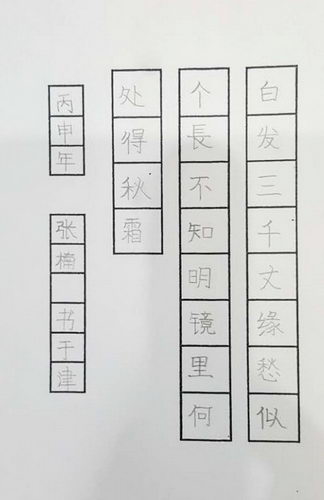 白发三千丈缘愁似
个長不知明镜里何
处得秋霜
丙申年
张楠 书于津